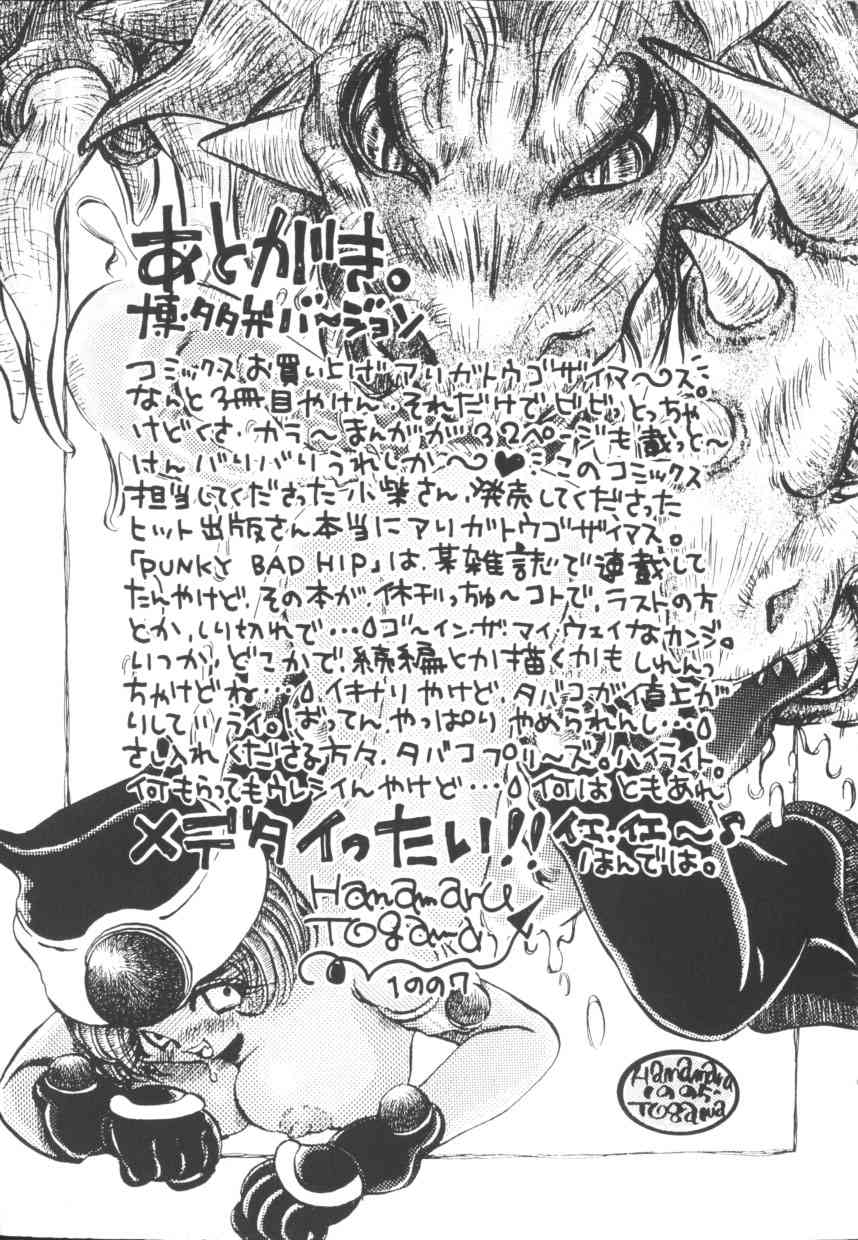 あとがき。
博・タタ弁バ〜ジョン
コミックスお買い上げアリガトウゴザイマ〜ス。
なんと3冊目やけん、それだけでビビっとっちゃ
けどくさ、カラ〜まんがが32ページも載っと〜
けんバリバリうれしか〜♥このコミックス
担当してくださった小柴さん、発売してくださった
ヒット出版さん本当にアリガトウゴザイマス。
「PUNKY BAD HIP」は、某雑誌で連載して
たんやけど、その本が、休刊っちゅ〜コトで、ラストの方
とか、しり切れで…ゴ〜イン・ザ・マイ・ウェイなカンジ。
いつか、どこかで、続編とか描くかもしれんっ
ちゃけどね…イキナリやけど、タバコが値上が
りしてツライ。ばってん、やっぱりやめられんし…
さし入れくださる方々、タバコプリ〜ズ。ハイライト。
何もらってもウレシイんやけど…何はともあれ
メデタイったい!!
仕・仕〜♪
ほんでは。
Hanamaru
TOGama
1997
Hanamaru
TOGama